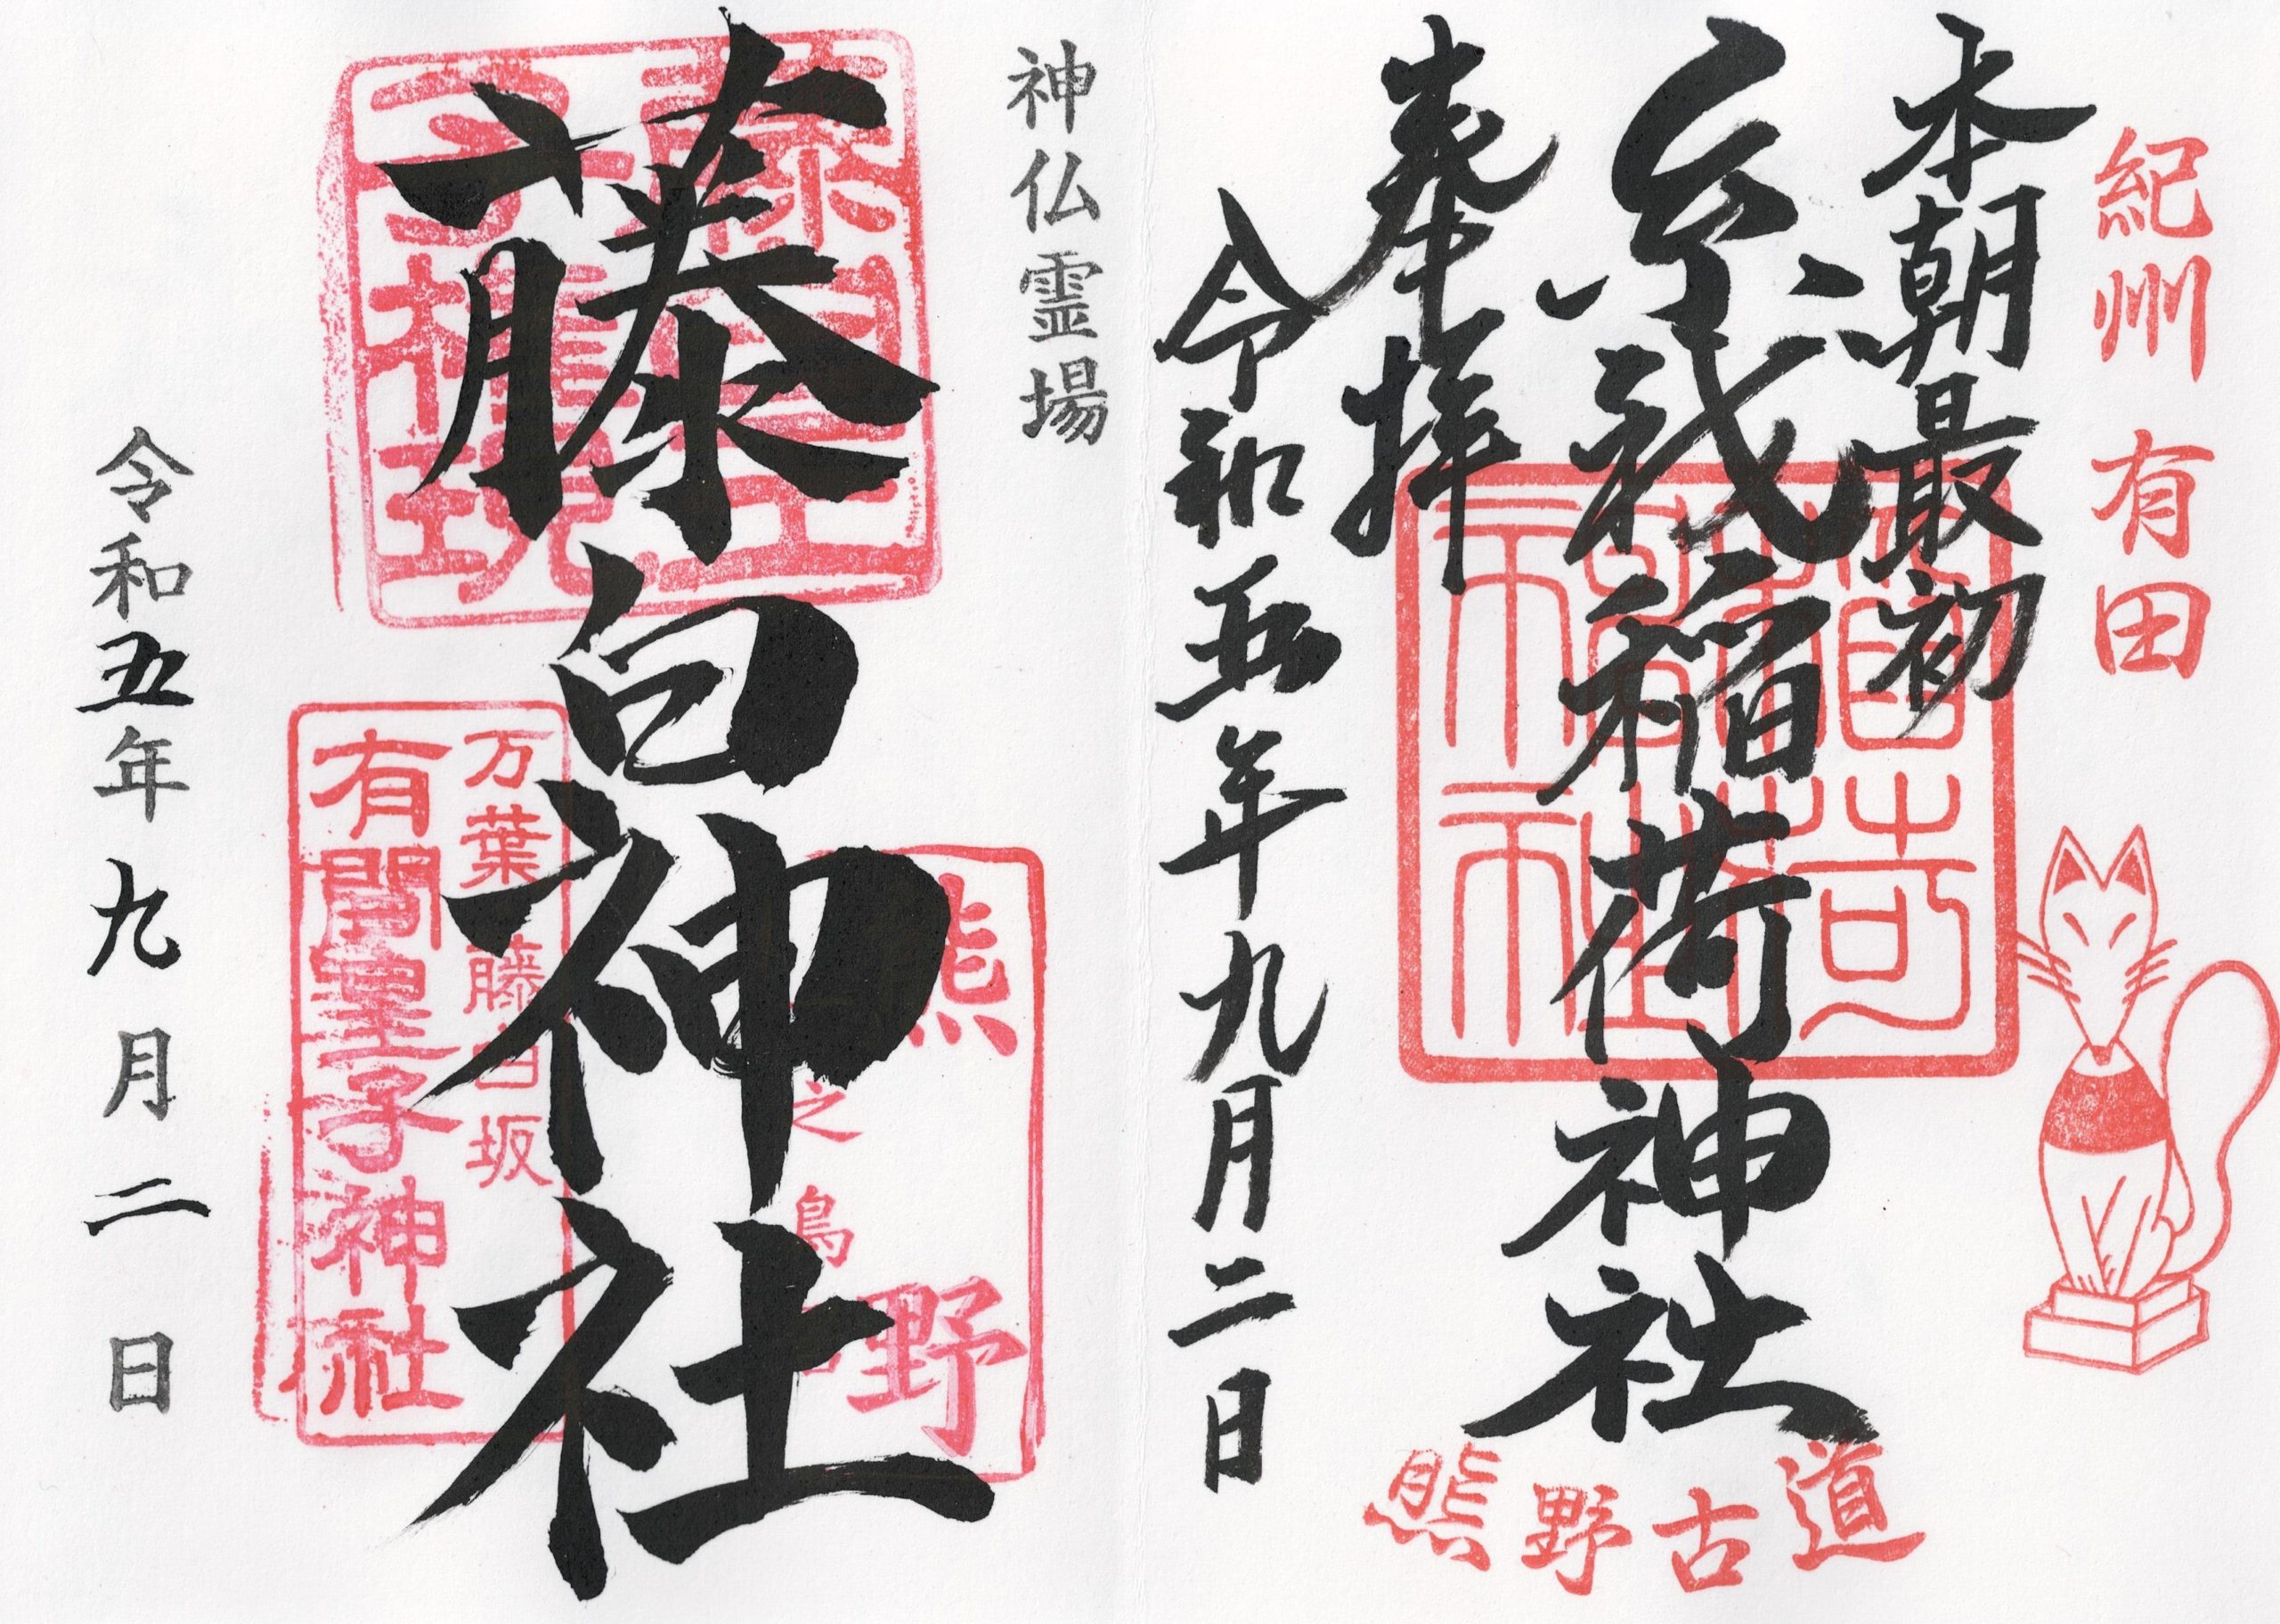 紀州 有田
本朝最初
糸我稲荷神社
奉拝
令和五年九月二日
熊野古道
神仏霊場
藤白神社
熊野
万葉 藤白坂
有間皇子神社
令和五年九月二日